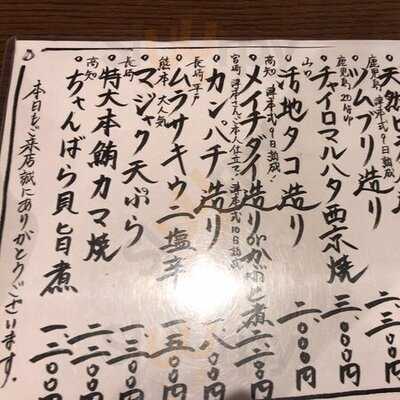 鹿児島 津本式9日熟成
ツムブリ造り
鹿児島
チャイロマルハタ西京焼
三、〇〇〇円
山口
活地タコ造り
二、〇〇〇円
高知 津本式9日熟成!
メイチダイ造り
二、二〇〇円
宮崎 津本さんご本人仕立て!津本式10日熟成
カンパチ造り
一、八〇〇円
長崎平戸
ムラサキウニ塩辛
一、五〇〇円
熊本 大人気
マジャク天ぷら
一、三〇〇円
長崎
特大本鮪カマ焼
二、二〇〇円
高知
ちゃんばら貝旨煮
一、二〇〇円
本日もご来店誠にありがとうございます。